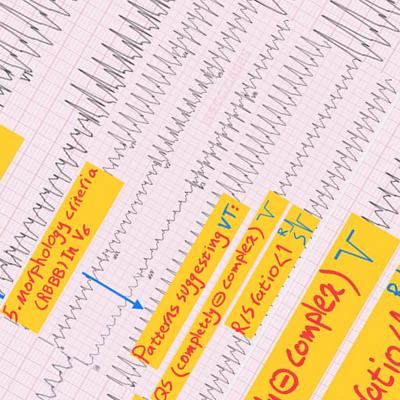 5. morphology criteria
(RBBB) In V6
Patterns suggesting VT:
QS (completely ⊖ complex) V
R/S ratio <1 R/S V
⊖ complex) V
atio <1